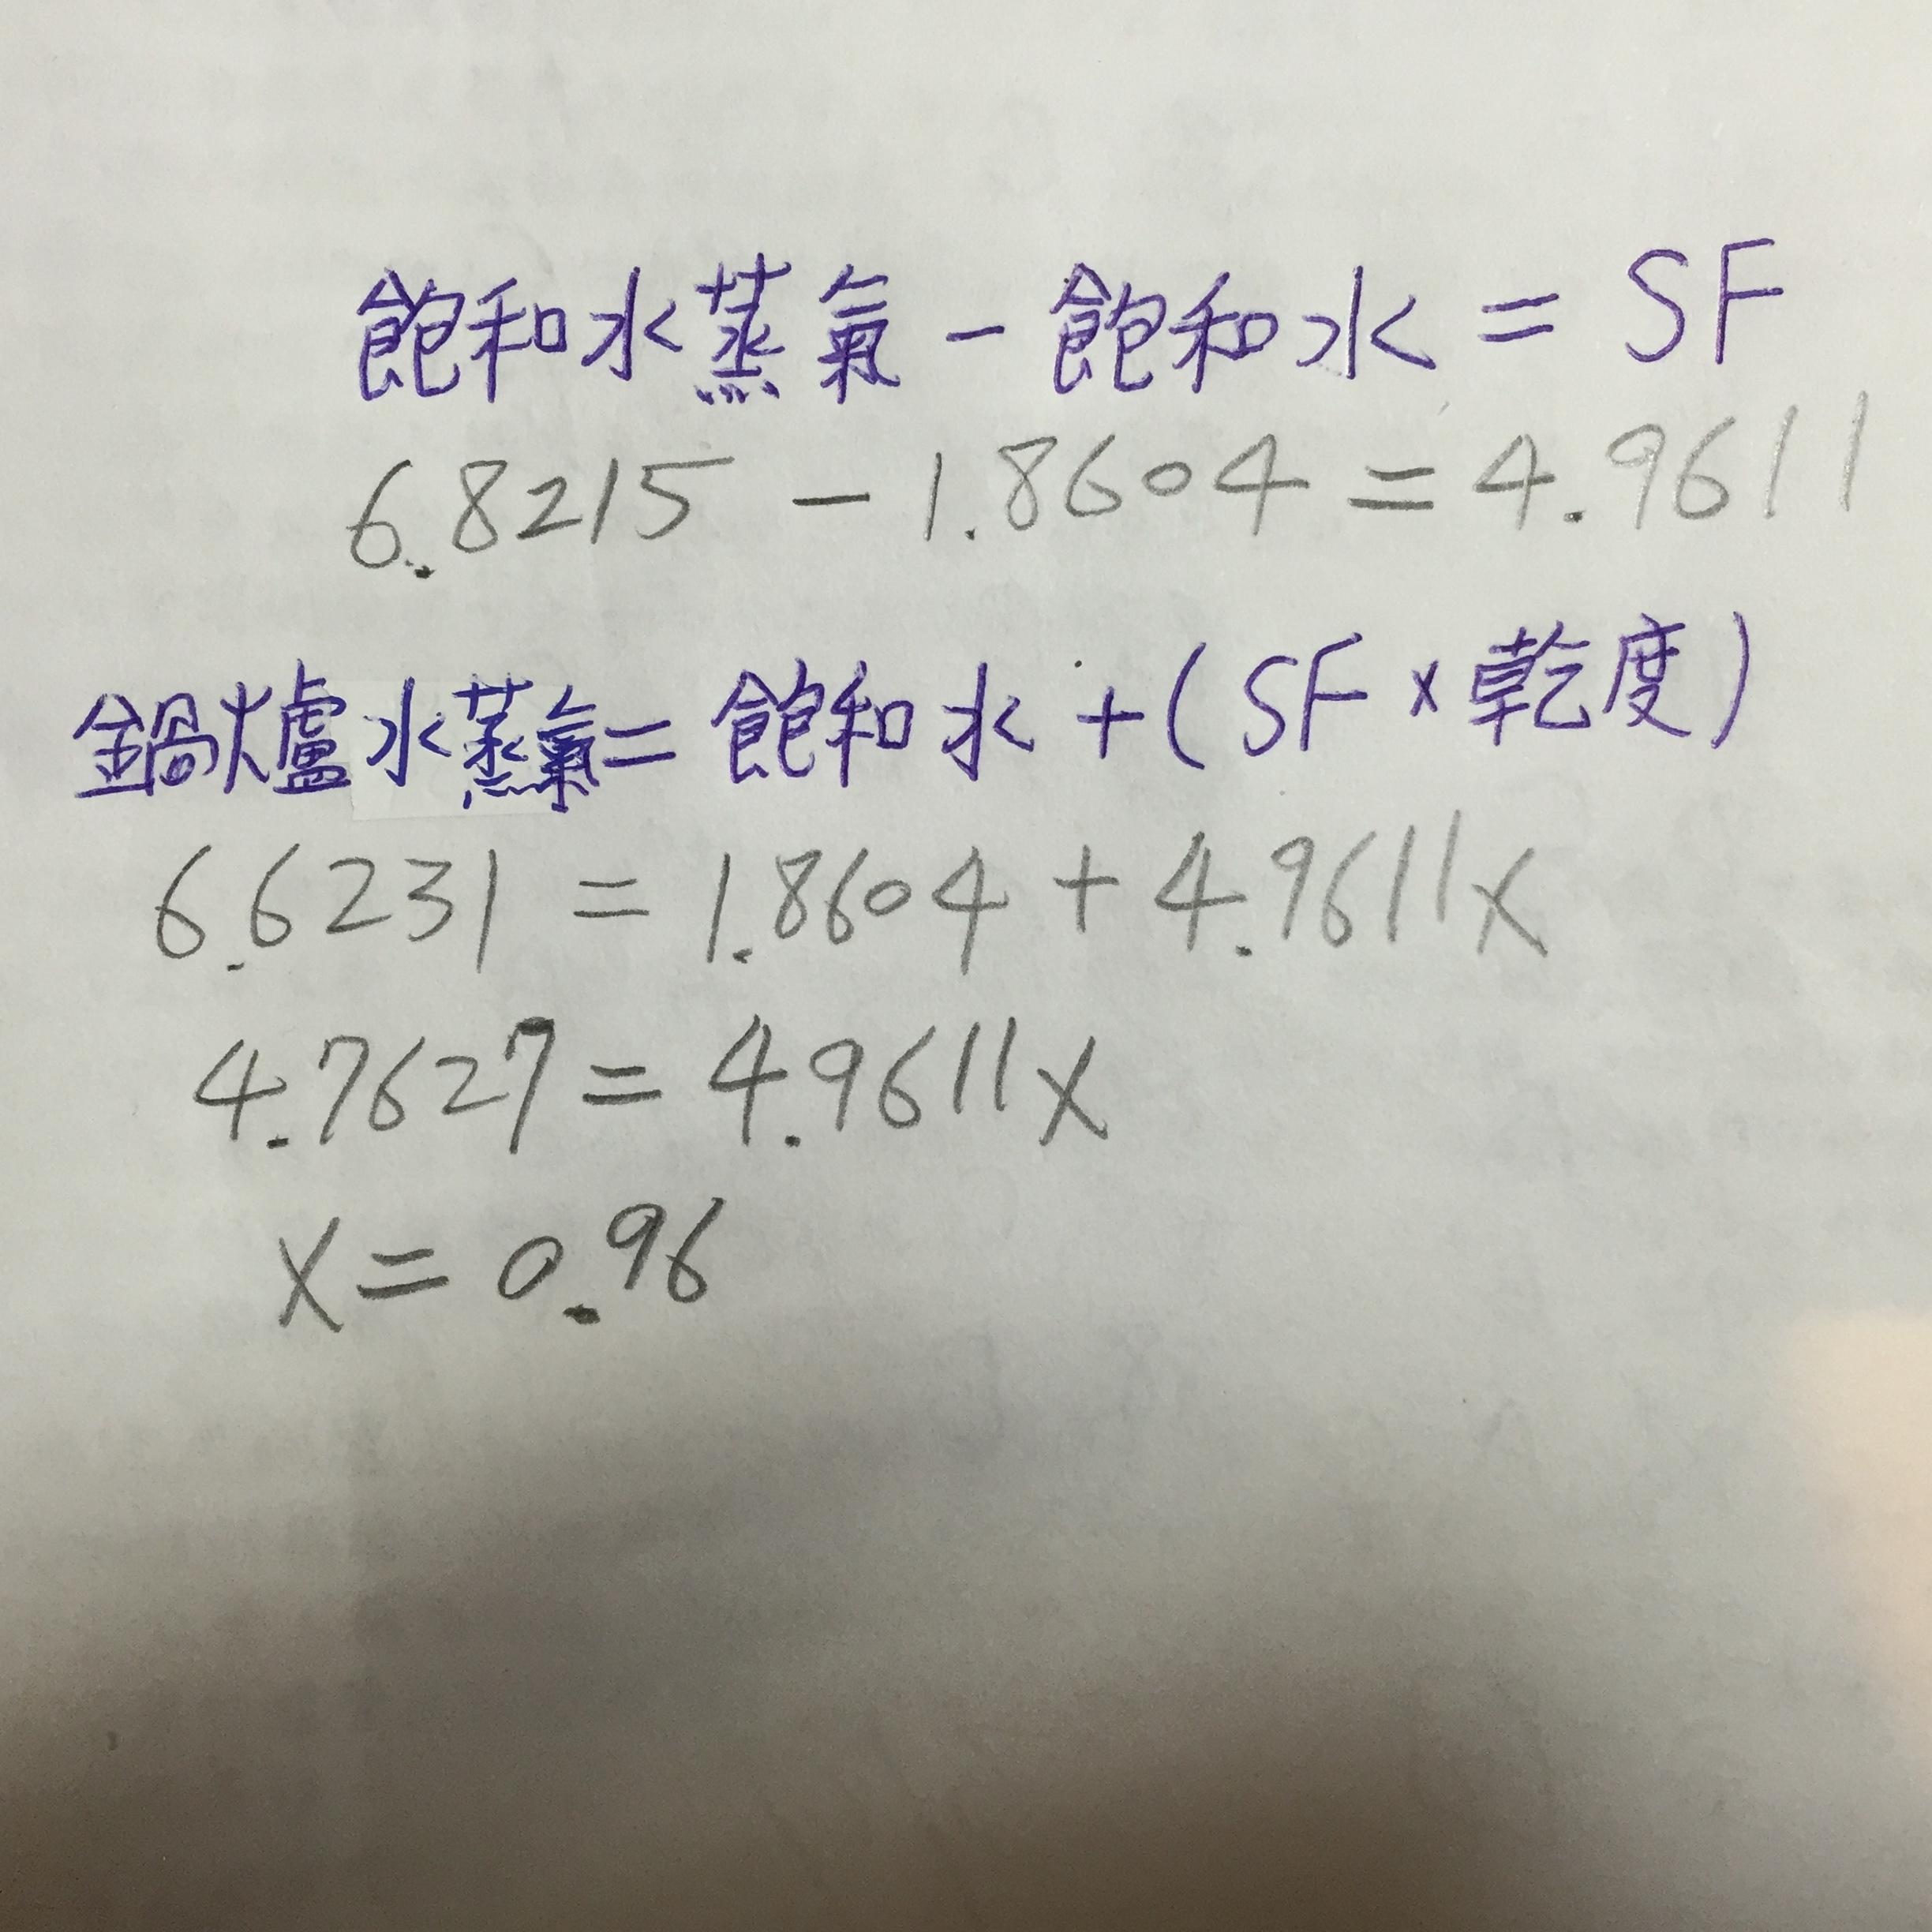 飽和水蒸氣-飽和水=SF
6.8215-1.8604=4.9611
鍋爐水蒸氣=飽和水+(SF×乾度)
6.6231=1.8604+4.9611x
4.7627=4.9611x
x=0.96